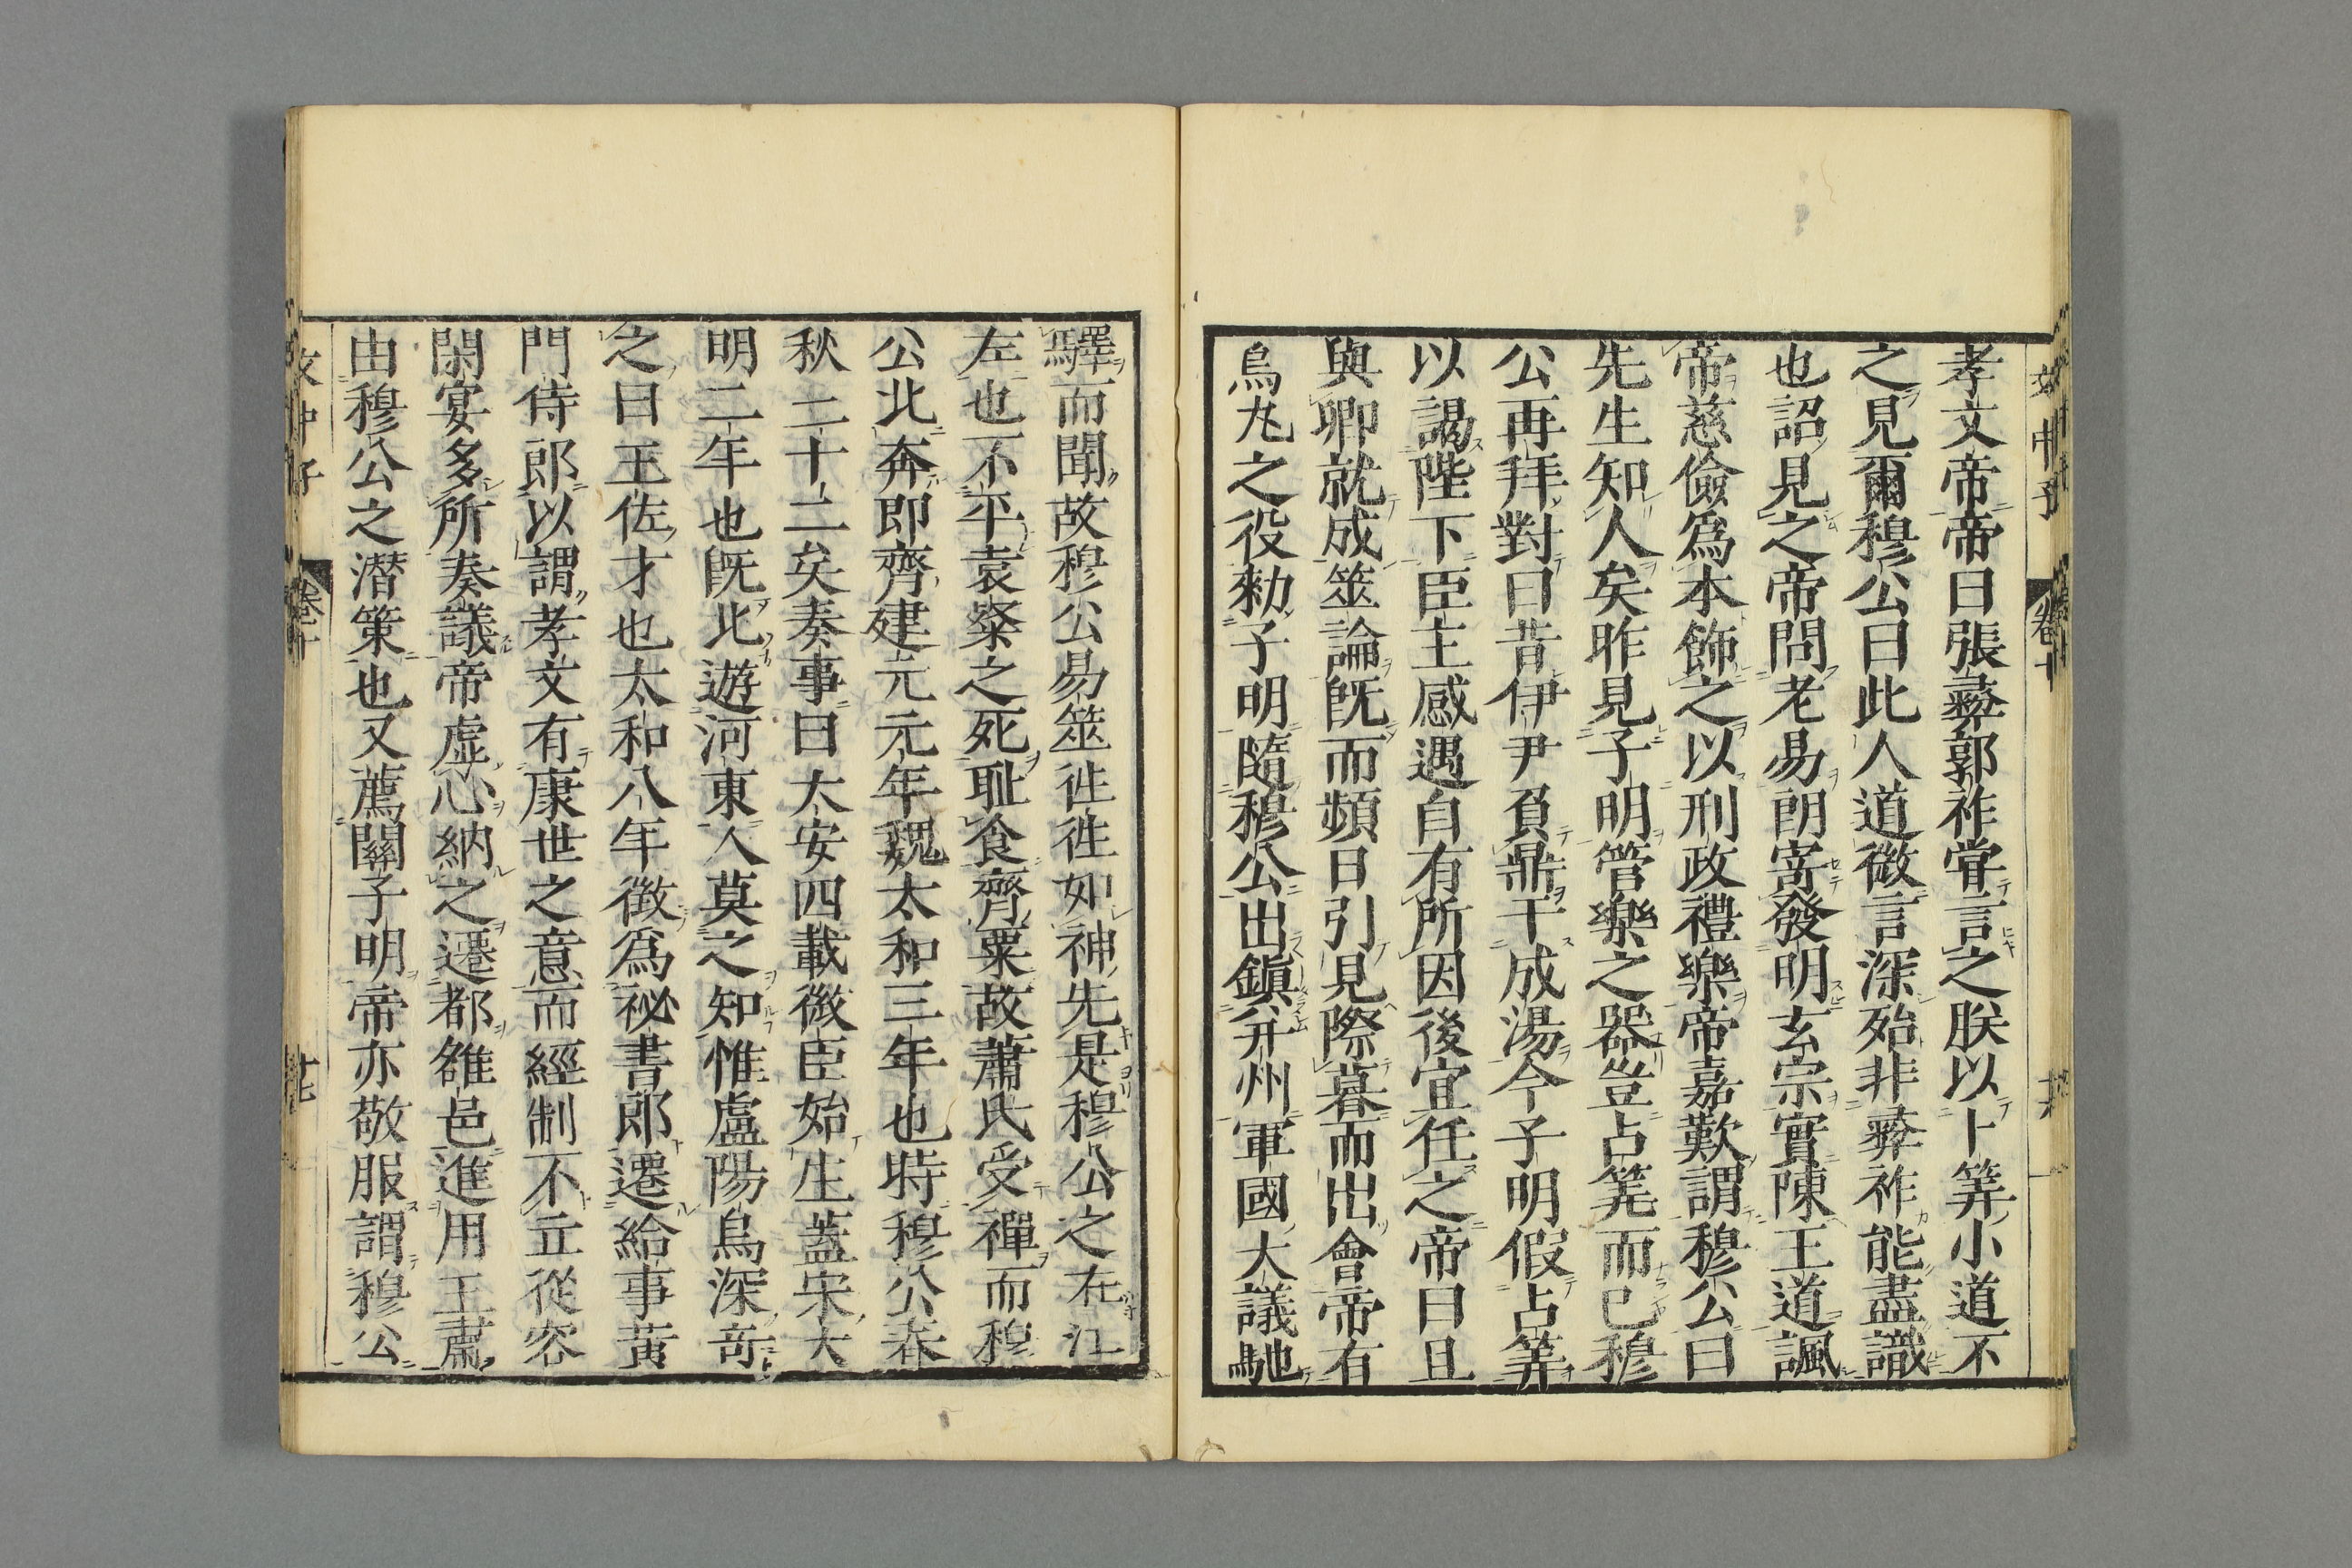 孝文帝帝曰張彛郭祚甞言之朕以卜筭小道不
之見爾穆公曰此人道微言深殆非彛祚能盡識
也詔見之帝問老易朗寄發明玄宗實陳王道諷
帝慈儉爲本飾之以刑政禮樂帝嘉歎謂穆公曰
先生知人矣昨見子明管樂之器豈占筭而已穆
公再拜對曰昔伊尹負鼎干成湯今子明假占筭
以謁陛下臣主感遇自有所因後宜任之帝曰且
與卿就成筮論既而頻日引見際暮而出會帝有
烏丸之役勑子明隨穆公出鎭并州軍國大議馳
驛而聞故穆公易筮徃徃如神先是穆公之在江
左也不平袁粲之死耻食齊粟故蕭氏受禪而穆
公北奔即齊建元元年魏太和三年也時穆公春
秋二十二矣奏事曰大安四載微臣始生蓋宋大
明二年也既北遊河東人莫之知惟盧陽烏深竒
之曰王佐才也太和八年徴爲祕書郎遷給事黃
門侍郎以謂孝文有康世之意而經制不立從容
閑宴多所奏議帝虚心納之遷都雒邑進用王肅
由穆公之潛策也又薦關子明帝亦敬服謂穆公
文中子
卷十